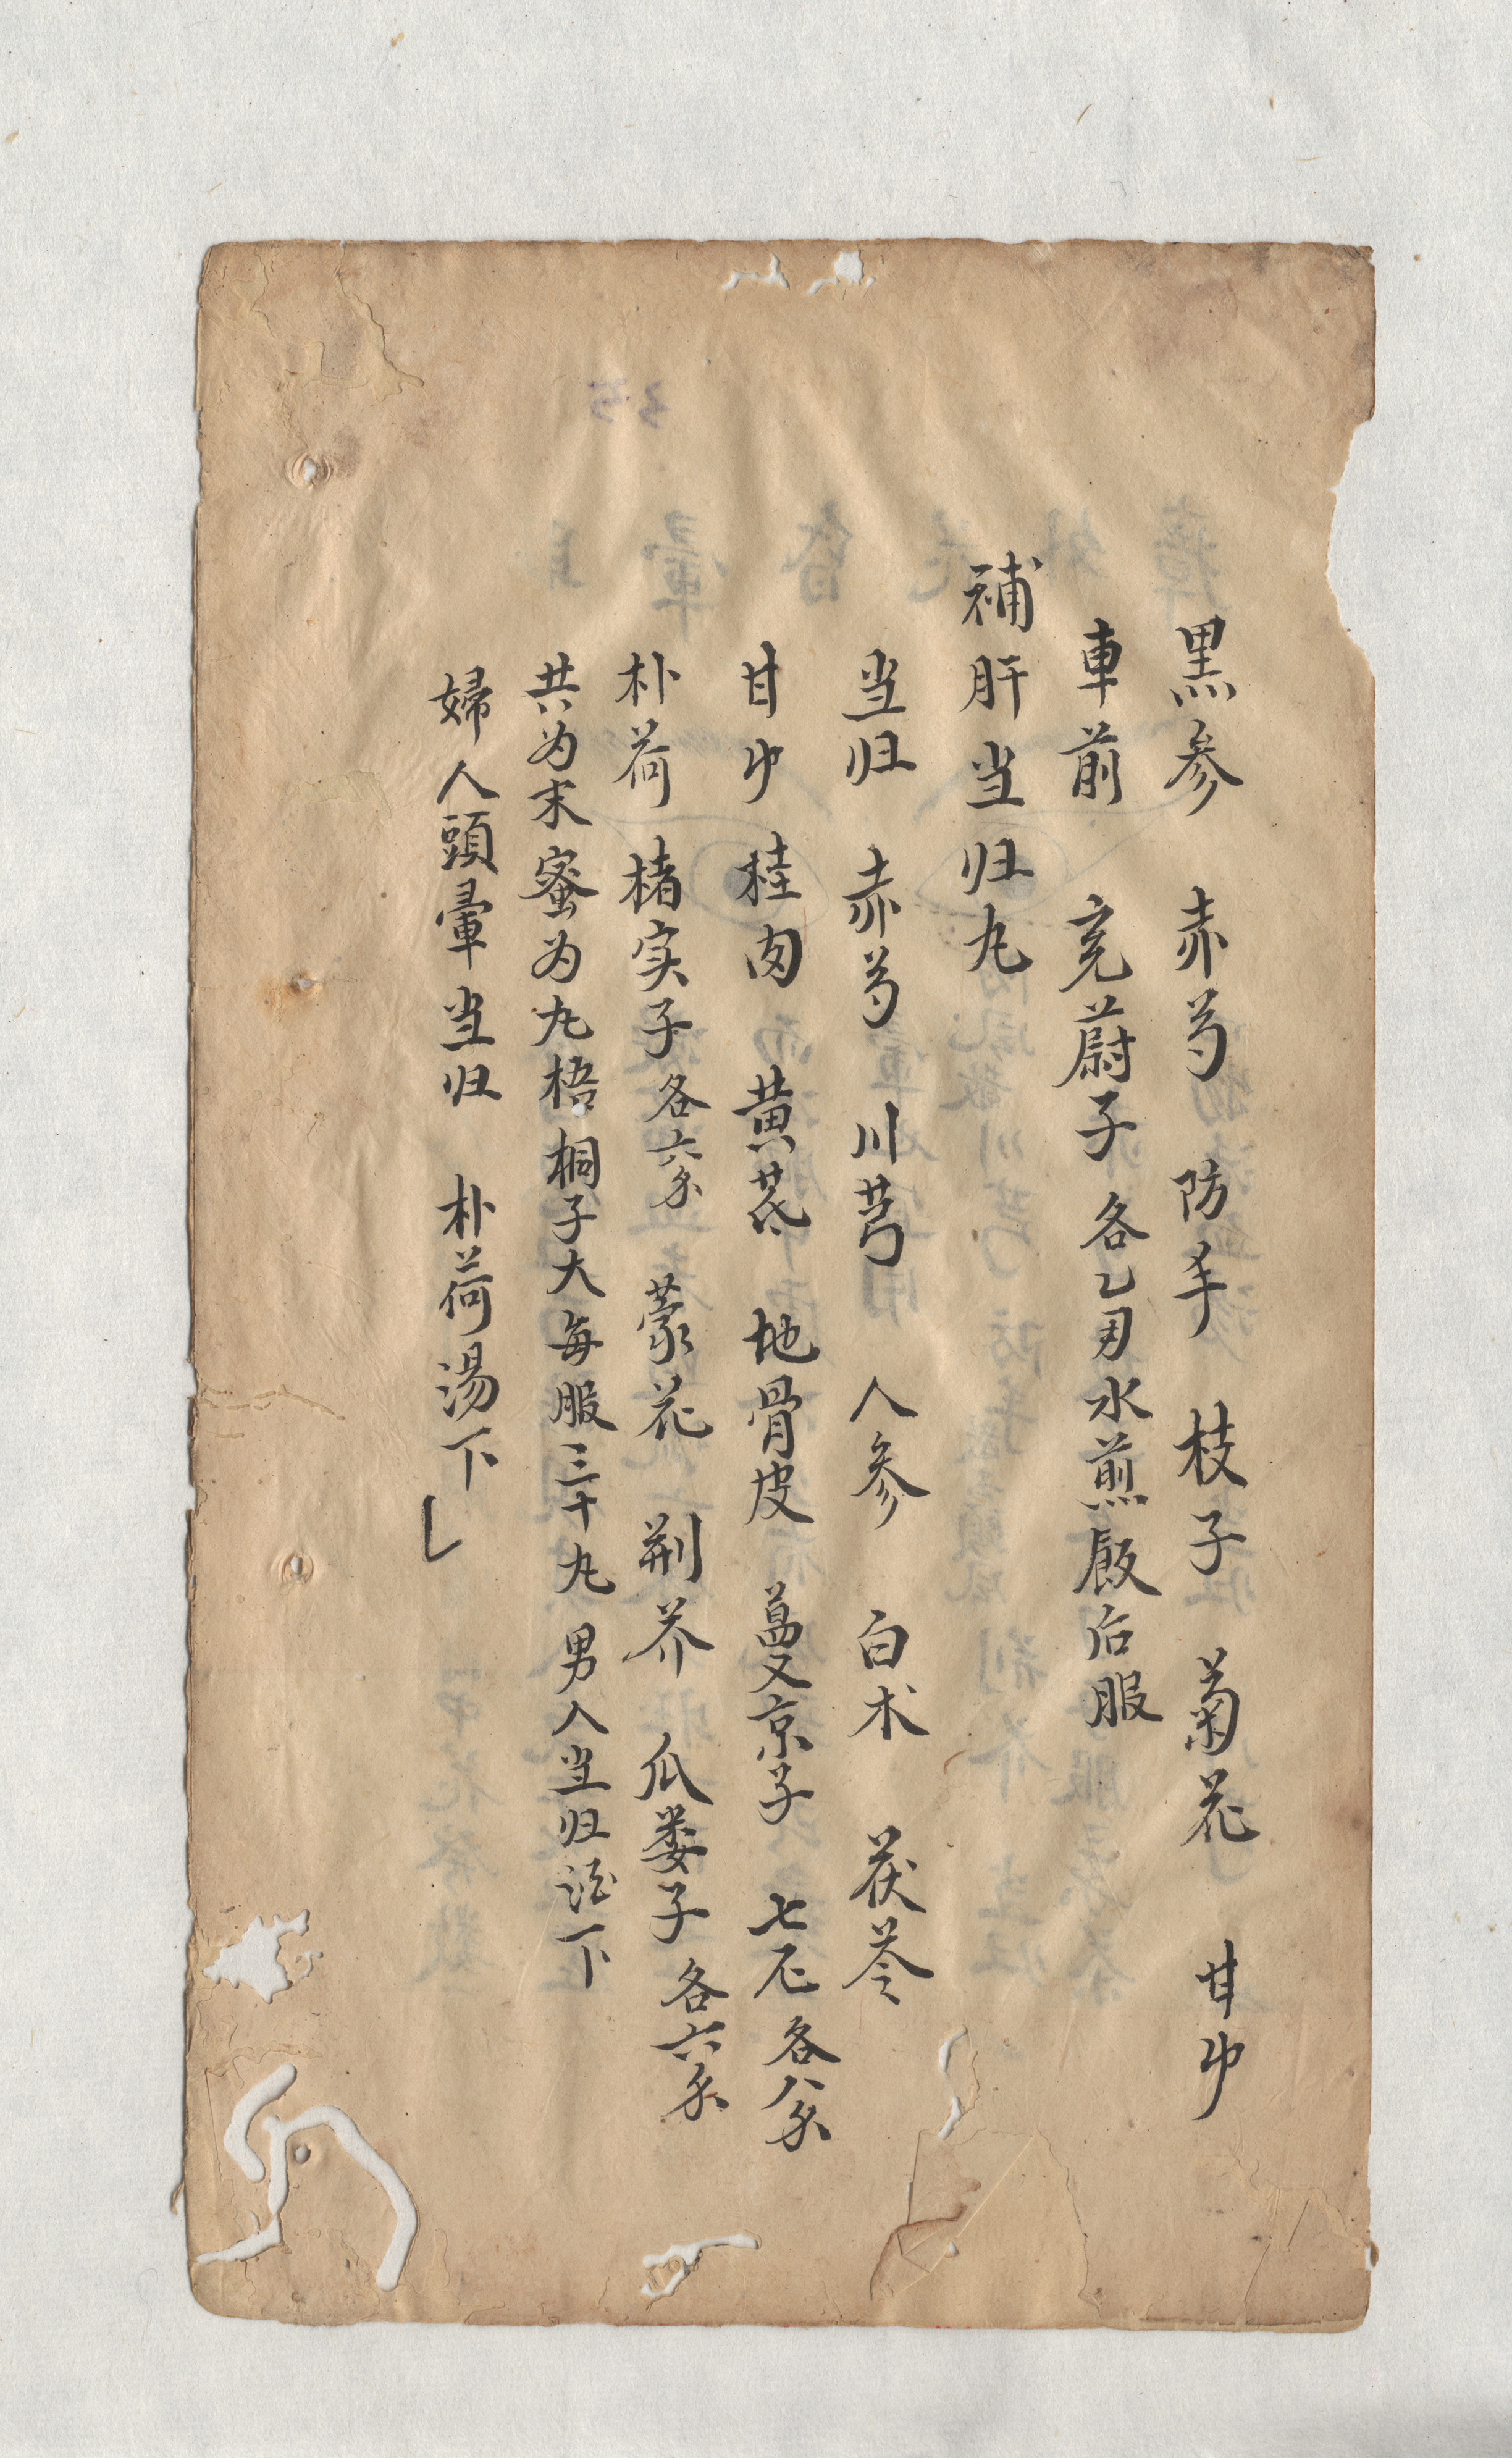 黒参 赤芍 防 枝子 菊花 甘
車前 充蔚子 各乙 水煎 后服
補肝当归丸
当归 赤芍 川芎 人参 白术 茯苓
甘 桂肉 黄芪 地骨皮 京子 七 各八
朴荷 楮实子 各六 蒙花 荆芥 瓜娄子 各六
共为末蜜为丸梧桐子大每服三十丸男人当归酒下
婦人頭暈当归 朴荷湯下